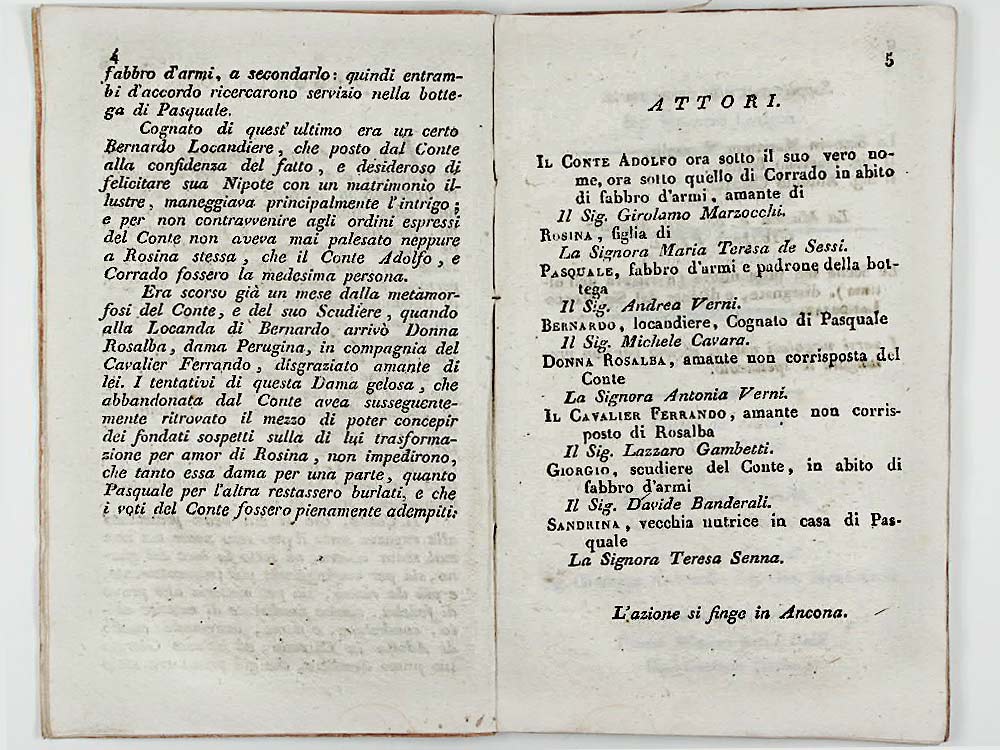 4
fabbro d'armi, a secondarlo: quindi entram-
bi d'accordo ricercarono servizio nella botte-
ga di Pasquale.
Cognato di quest' ultimo era un certo
Bernardo Locandiere, che posto dal Conte
alla confidenza del fatto, e desideroso di
felicitare sua Nipote con un matrimonio il-
lustre, maneggiava principalmente l'intrigo;
e per non contravvenire agli ordini espressi
del Conte non aveva mai palesato neppure
a Rosina stessa, che il Conte Adolfo, e
Corrado fossero la medesima persona.
Era scorso già un mese dalla metamor-
fosi del Conte, e del suo Scudiere, quando
alla Locanda di Bernardo arrivò Donna
Rosalba, dama Perugina, in compagnia del
Cavalier Ferrando, disgraziato amante di
lei. I tentativi di questa Dama gelosa, che
abbandonata dal Conte avea susseguente-
mente ritrovato il mezzo di poter concepir
dei fondati sospetti sulla di lui trasforma-
zione per amor di Rosina, non impedirono,
che tanto essa dama per una parte, quanto
Pasquale per l'altra restassero burlati, e che
i voti del Conte fossero pienamente adempiti:
5
ATTORI.
IL CONTE ADOLFO ora sotto il suo vero no-
me, ora sotto quello di Corrado in abito
di fabbro d'armi, amante di
Il Sig. Girolamo Marzocchi.
ROSINA, figlia di
La Signora Maria Teresa de Sessi.
PASQUALE, fabbro d'armi e padrone della bot-
tega
Il Sig. Andrea Verni.
BERNARDO, locandiere, Cognato di Pasquale
Il Sig. Michele Cavara.
DONNA ROSALBA, amante non corrisposta del
Conte
La Signora Antonia Verni.
IL CAVALIER FERRANDO, amante non corris-
posto di Rosalba
Il Sig. Lazzaro Gambetti.
GIORGIO, scudiere del Conte, in abito di
fabbro d'armi
Il Sig. Davide Banderali.
SANDRINA, vecchia nutrice in casa di Pas-
quale
La Signora Teresa Senna.
L'azione si finge in Ancona.